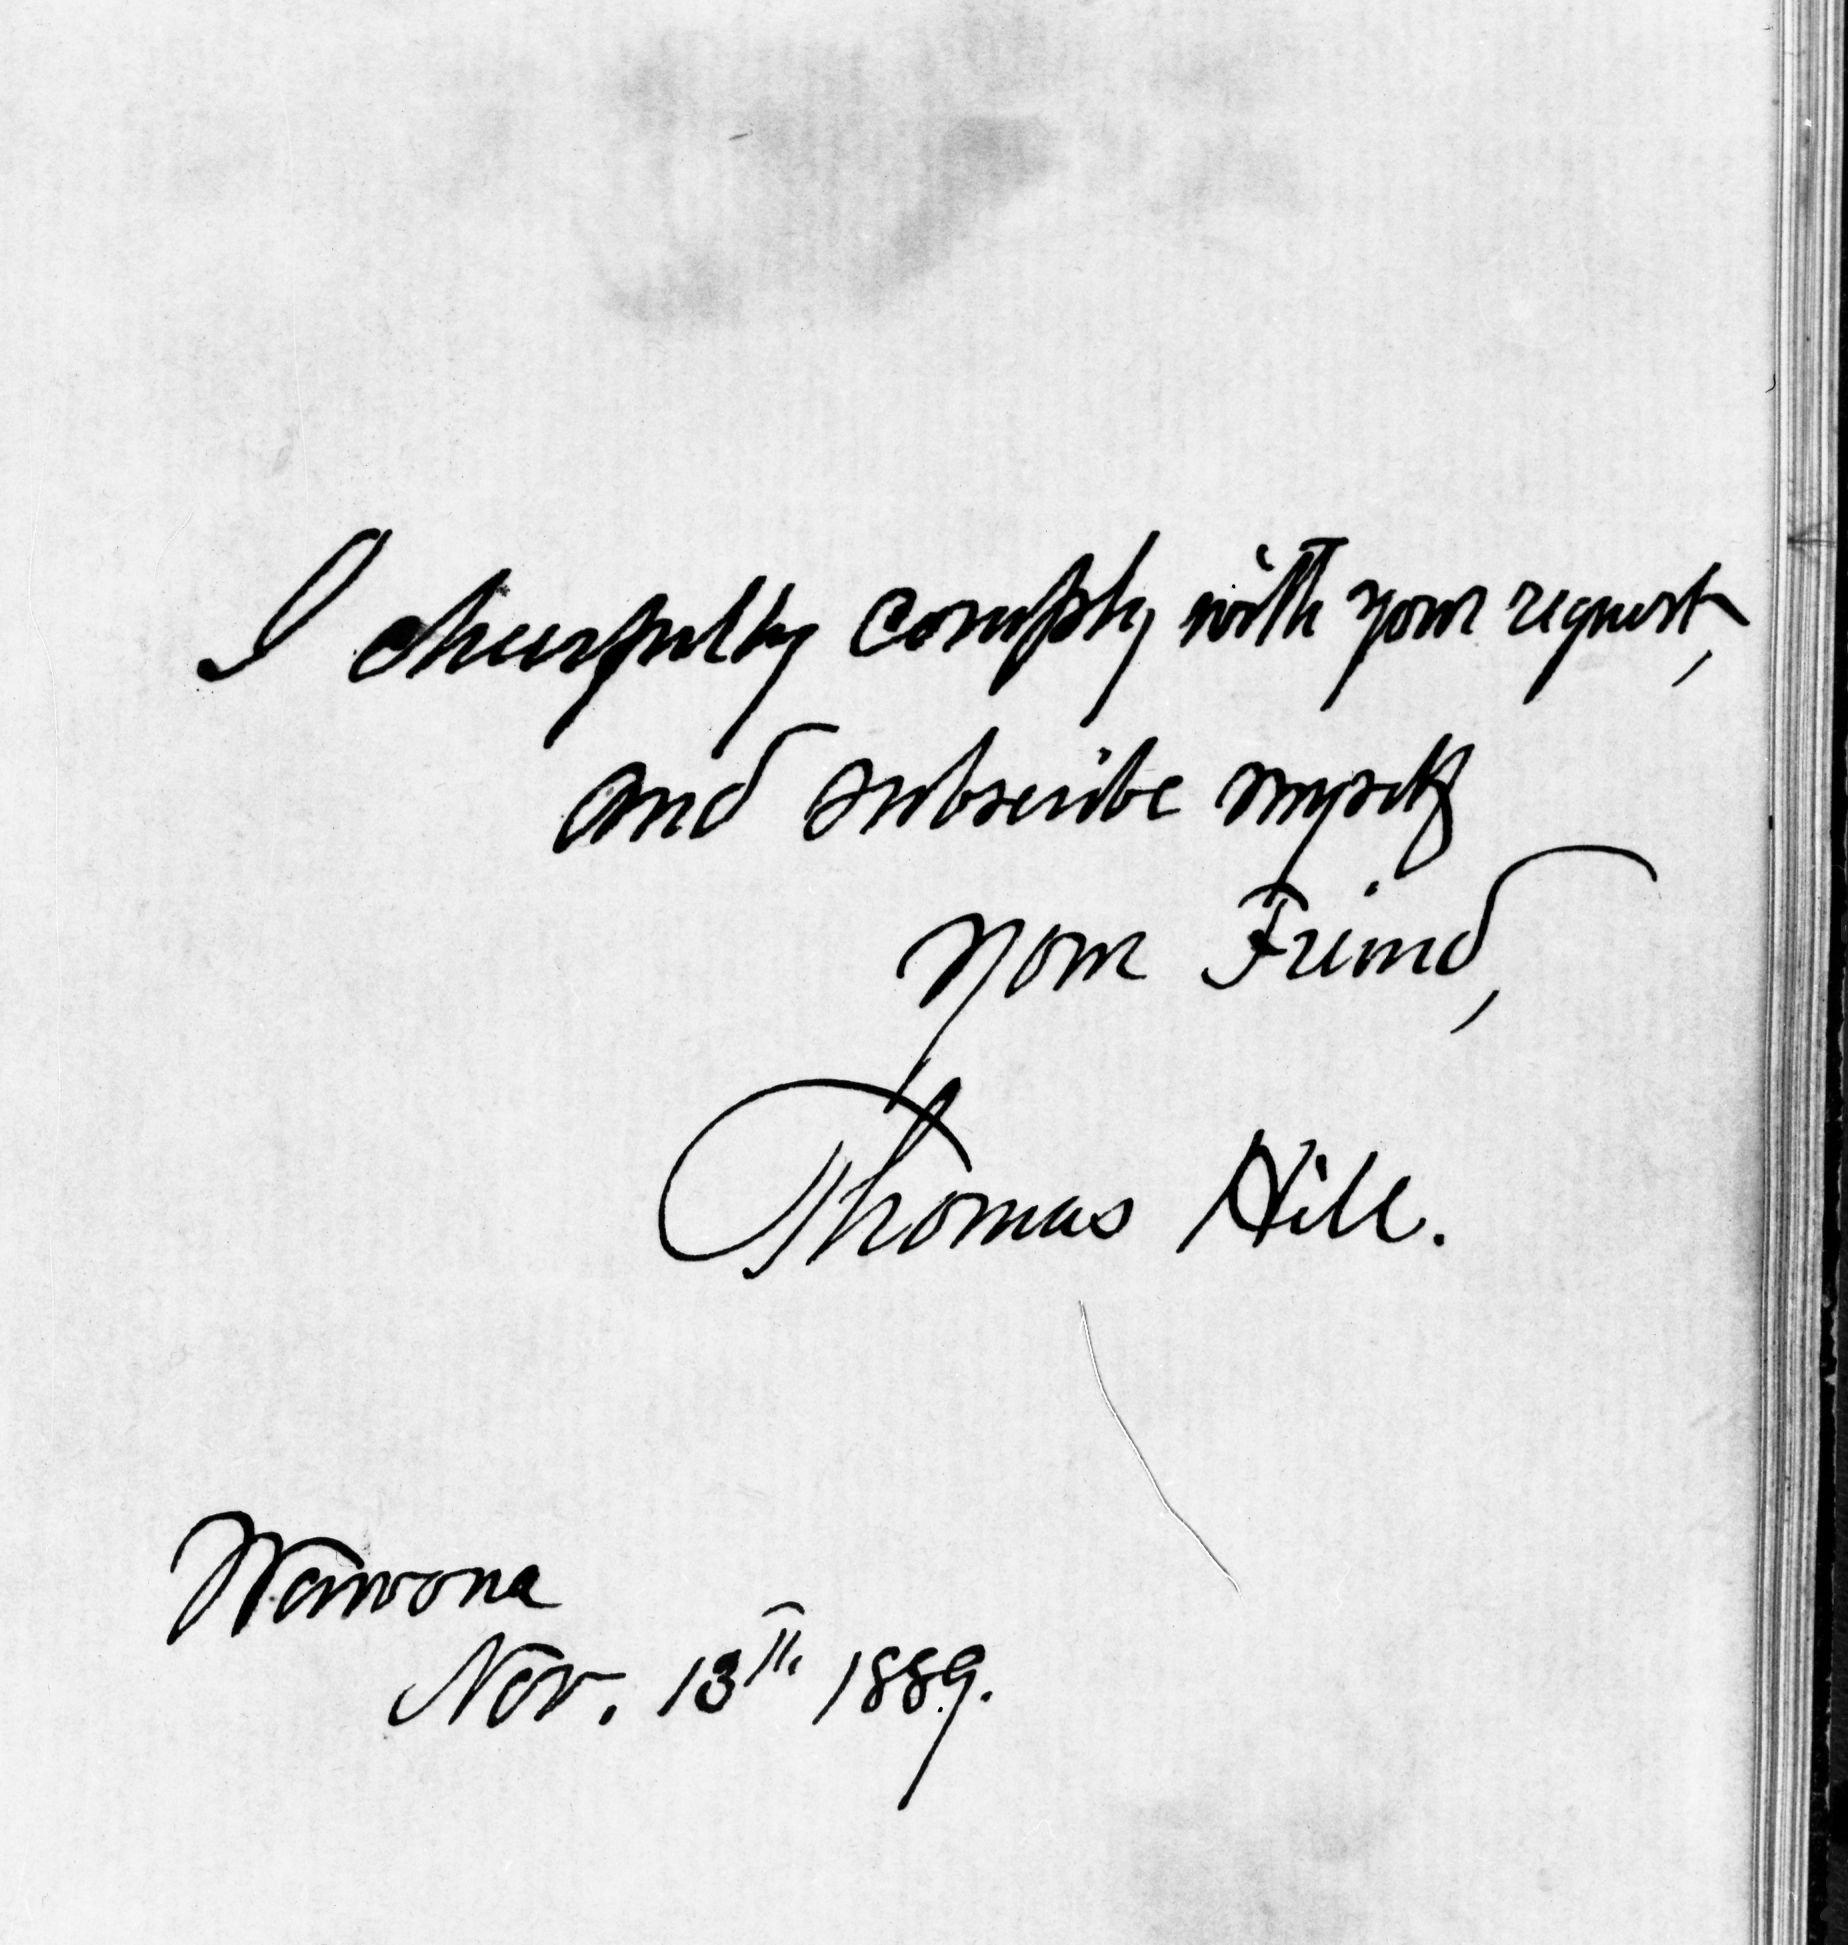 I cheerfully comply with your request,
and subscribe myself
your Friend,
Thomas Hill.
Wawona
Nov. 13th 1889.